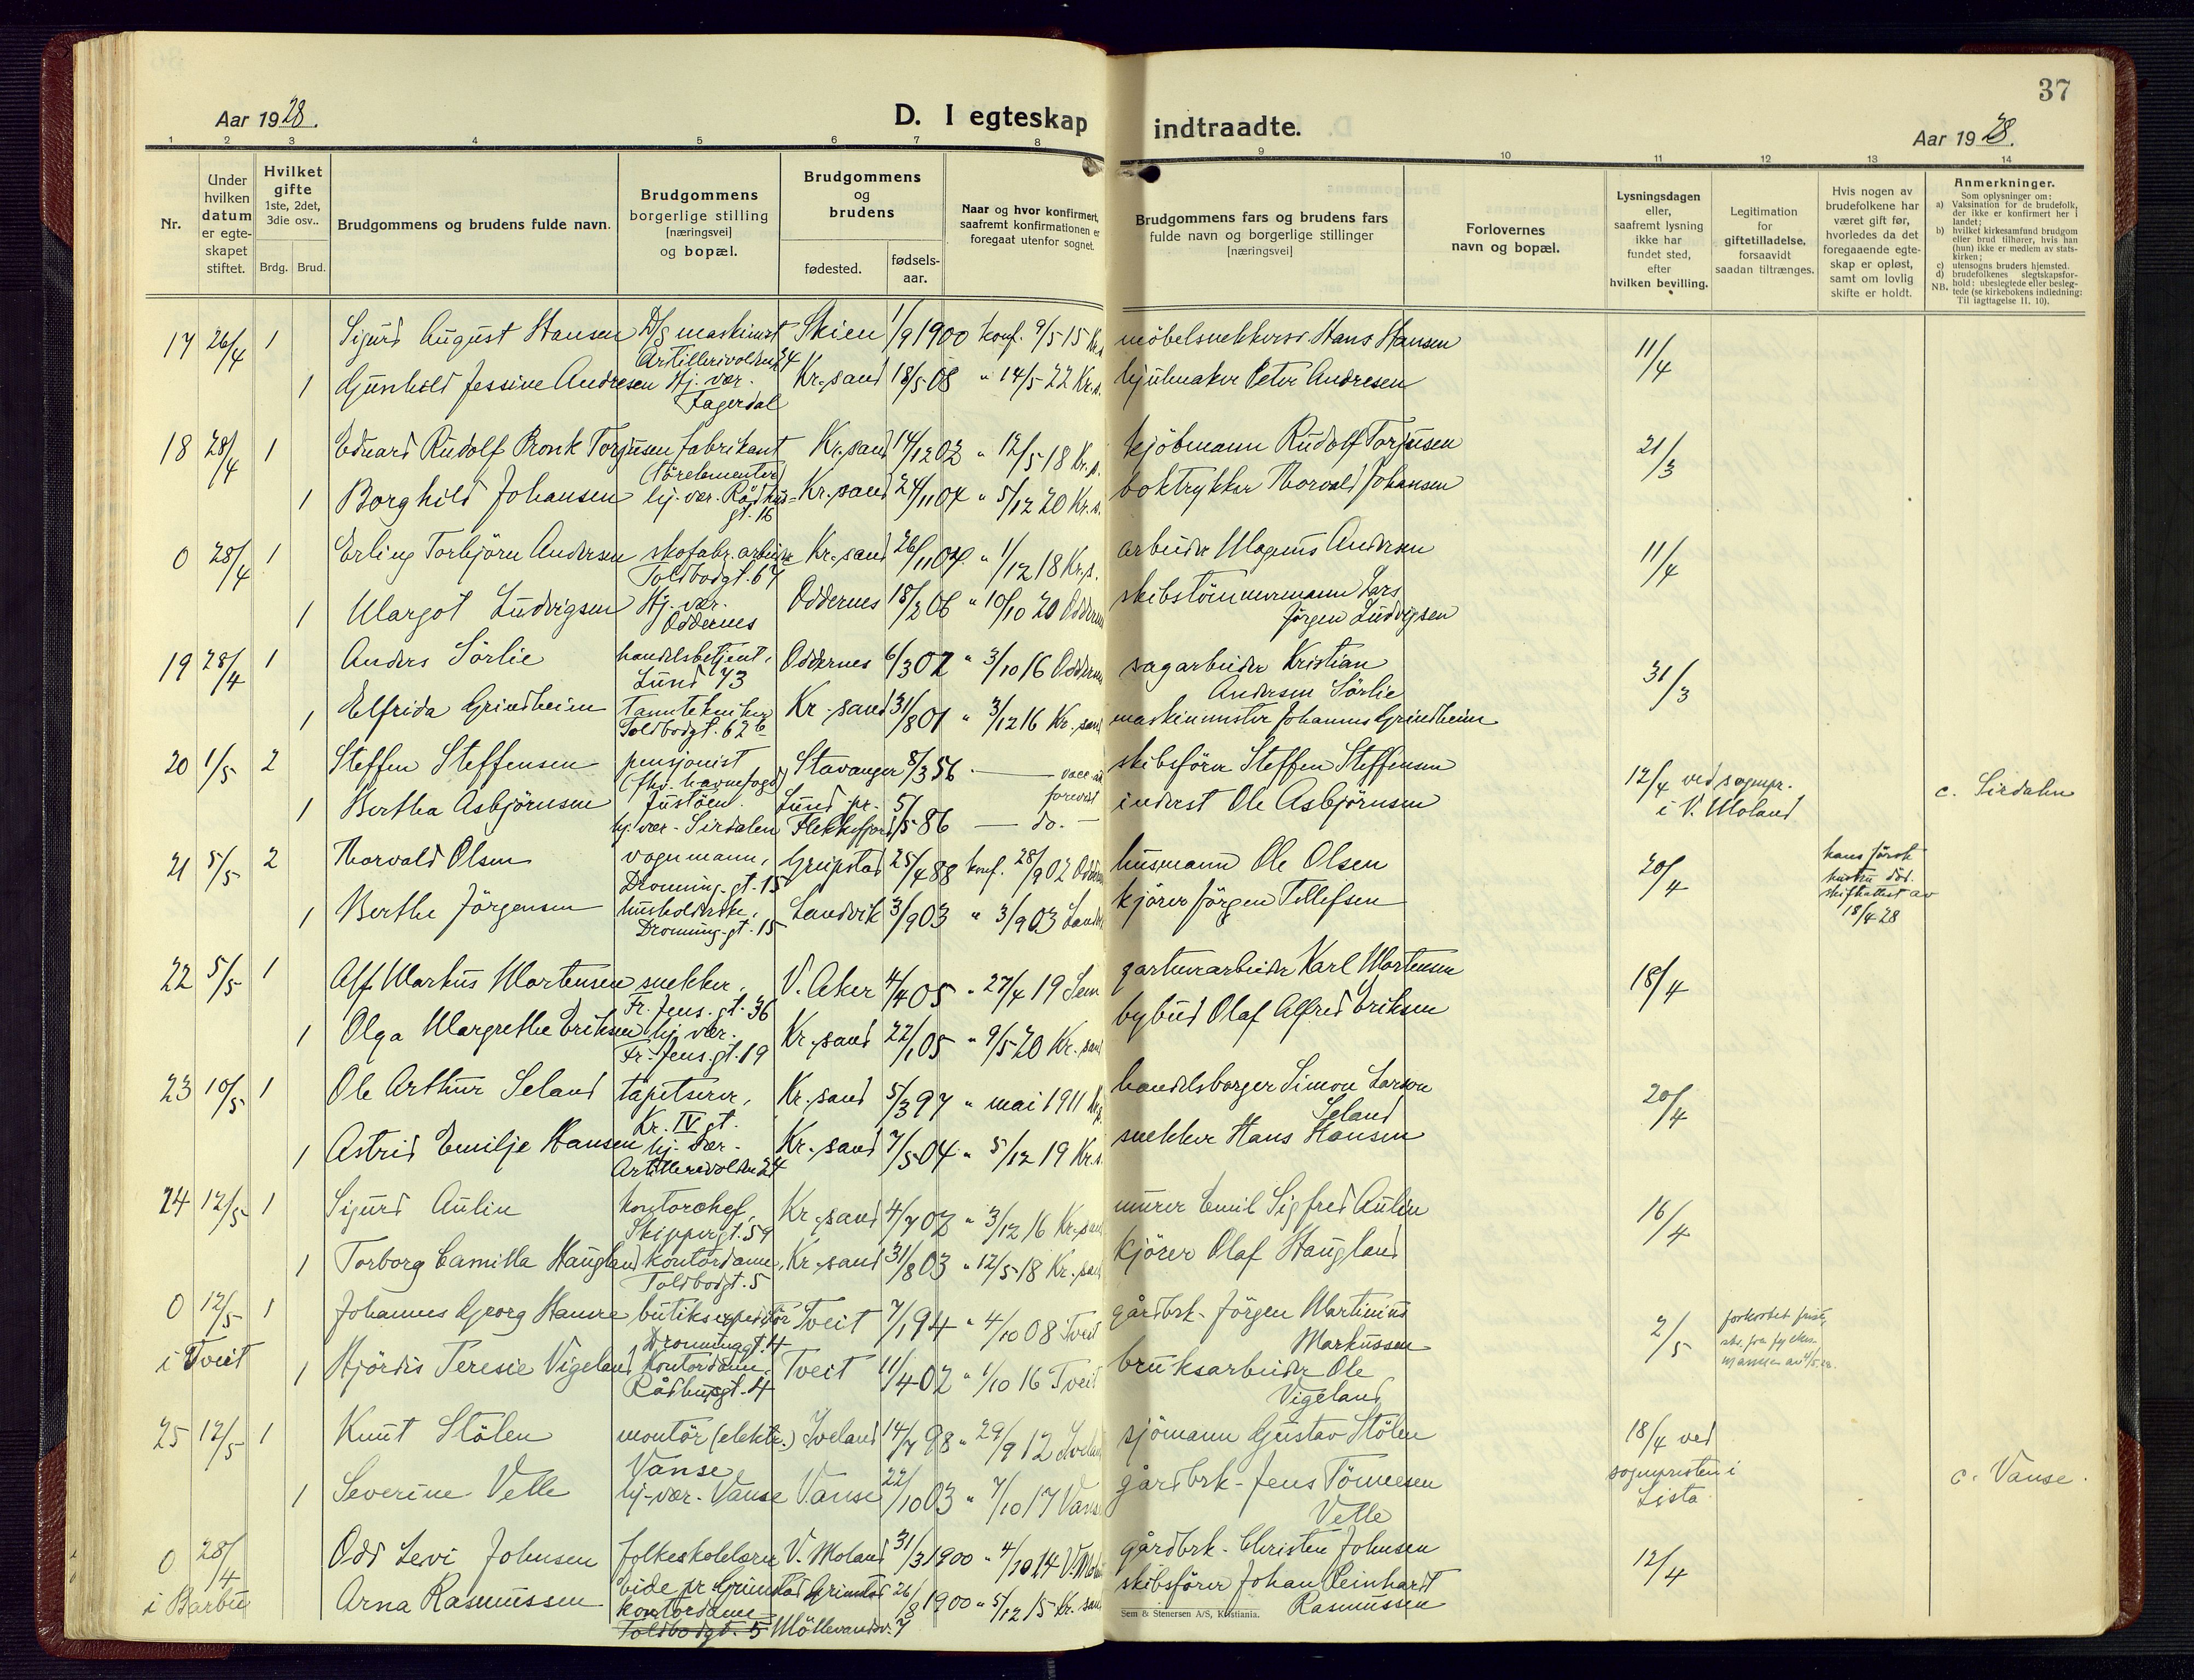 37
Aar 1928.
D. I egteskap indtraadte.
Aar 1928.
1 2 3 4 5 6 7 8 9 10 11 12 13 14
Nr.
Under hvilken datum er egte-skapet stiftet.
Hvilket gifte 1ste, 2det, 3die osv..
Brdg. Brud.
Brudgommens og brudens fulde navn.
Brudgommens borgerlige stilling [næringsvei] og bopæl.
Brudgommens og brudens
fødested.
fødsels-aar.
Naar og hvor konfirmert, saafremt konfirmationen er foregaat utenfor sognet.
Brudgommens fars og brudens fars fulde navn og borgerlige stillinger [næringsvei]
Forlovernes navn og bopæl.
Lysningsdagen eller, saafremt lysning ikke har fundet sted, efter hvilken bevilling.
Legitimation for giftetilladelse, forsaavidt saadan tiltrænges.
Hvis nogen av brudefolkene har været gift før, hvorledes da det foregaaende egte-skap er opløst, samt om lovlig skifte er holdt.
Anmerkninger.
Som oplysninger om:
a) Vaksination for de brudefolk, der ikke er konfirmert her i landet;
b) hvilket kirkesamfund brudgom eller brud tilhører, hvis han (hun) ikke er medlem av stats-kirken;
c) utensogns bruders hjemsted.
d) brudefolkenes slegtskapsfor-hold: ubeslegtede eller besleg-tede (se kirkebokens indledning: Til iagttagelse II. 10).
NB.
17 26/4 1 Sigurd August Hansen D/s maskinist Skien 1/9 1900 konf. 9/5 15 Kr.s. möbelsnekkerss. Hans Hansen 11/4
Artillerivolden 24
1 Gunhild Jessine Andresen Hj. vær. Kr.sand 18/5 08 " 14/5 22 Kr.s. hjulmaker Peter Andresen
Fagerdal
18 28/4 1 Edvard Rudolf Pronk Torjusen fabrikant Kr.sand 14/12 02 " 12/5 18 Kr.s. kjöbmann Rudolf Torjusen 21/3
1 Borghild Johansen hj. vær. Rådhus- Kr.sand 24/11 04 " 5/12 20 Kr.s. boktrykker Thorvald Johansen
gt. 16
0 28/4 1 Erling Torbjörn Andersen skofabr. arbeider Kr.sand 26/11 04 " 1/12 18 Kr.s. arbeider Magnus Andersen 11/4
Toldbodgt. 67
1 Margot Ludvigsen Hj. vær. Oddernes 18/2 06 " 10/10 20 Oddernes skibstömmermann Lars
Oddernes Jörgen Ludvigsen
19 28/4 1 Anders Sörlie handelsbetjent, Oddernes 6/3 02 " 3/10 16 Oddernes sagarbeider Kristian 31/3
Lund 73 Andersen Sörlie
1 Elfrida Grindheim Tanntekniker Kr.sand 31/8 01 " 3/12 16 Kr.sand maskinmster Johannes Grindheim
Toldbodgt. 62 b
20 1/5 2 Steffen Steffensen pensjonist Stavanger 8/3 56 skibsförer Steffen Steffensen 12/4 ved sognepr. c. Sirdalen
(fhv. havnefogd) Justöen forevist i V. Moland
1 Bertha Asbjörnsen hj. vær. Sirdalen Lund pr. Flekkefjord 5/5 86 — do. — inderst Ole Asbjörnsen
21 5/5 2 Thorvald Olsen vognmann, Grimstad 25/4 88 konf. 28/9 02 husmann Ole Olsen 20/4 hans först hustru död. skifteattest av 18/4 28
Dronning.gt. 15
1 Berthe Jörgensen husholderske, Landvik 3/9 03 " 3/9 03 kjörer Jörgen Tellefsen
Dronning.gt. 15
22 5/5 1 Alf Markus Mortensen snekker, V. Aker 4/4 05 " 27/4 19 Sem gartnerarbeider Karl Mortensen 18/4
Fr. Jens. gt. 36
1 Olga Margrethe Eriksen hj. vær. Kr.sand 22/1 05 " 9/5 20 Kr.sand bybud Olaf Alfred Eriksen
Fr. Jens. gt. 19
23 10/5 1 Ole Arthur Seland tapetserer, Kr.sand 5/3 97 " mai 1911 handelsborger Simon Larson 20/4
Kr. IV gt. Seland
1 Astrid Emilje Hansen hj. vær. Kr.sand 7/5 04 " 5/12 19 Kr.s. snekker Hans Hansen
Artillerivolden 24
24 12/5 1 Sigurd Aulin kontorchef, Kr.sand 4/7 02 " 3/12 16 Kr.sand murer Emil Sigfred Aulin 16/4
Skippergt. 59
1 Torborg Camilla Haugland kontordame, Kr.sand 31/8 03 " 12/5 18 Kr.sand kjörer Olaf Haugland
Toldbodgt. 5
0 12/5 1 Johannes Georg Hamre butiksexpeditör Tveit 7/1 94 " 4/10 08 Tveit gårdbrk. Jörgen Martinius 2/5
i Tveit Dronninggt. 4 Markussen
1 Hjördis Teresie Vigeland Kontordame, Tveit 11/4 02 " 1/10 16 Tveit bruksarbeider Ole
Rådhusgt. 4 Vigeland
25 12/5 1 Knut Stölen montör (elektr.) Iveland 14/7 98 " 29/9 12 Iveland sjömann Gustav Stölen 18/4 ved
Vanse
1 Severine Velle hj. vær. Vanse Vanse 22/10 03 " 7/10 17 Vanse gårdbrk. Jens Tönnesen sognepresten i Lista c. Vanse.
Velle
0 28/4 Odd Levi Johnsen folkeskolelærer V. Moland 31/3 1900 " 4/10 14 V. Moland gårdbrk. Christen Johnsen 12/4
i Barbu Eide pr Grimstad
Arna Rasmussen kontordame Grimstad 26/8 1900 " 5/12 15 Kr.sand skibsförer Johan Reinhardt
Toldbodgt. 5 Möllevandsv. 7 Rasmussen
Sem & Stenersen A/S, Kristiania.